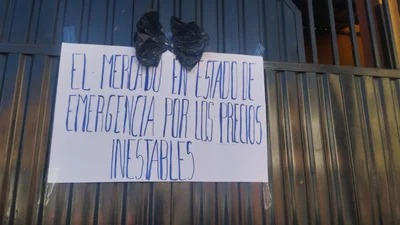 EL MERCADO EN ESTADO DE
EMERGENCIA POR LOS PRECIOS
INESTABLES